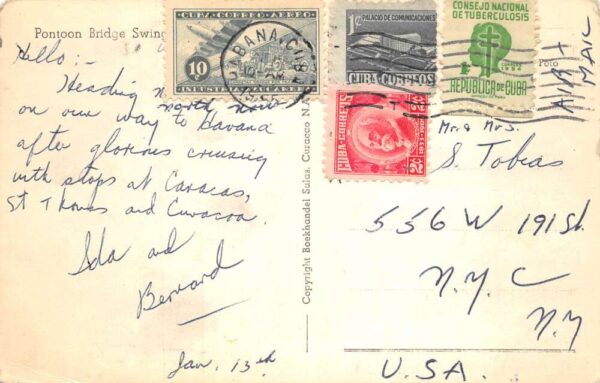 Pontoon Bridge Swing
Hello:-
Heading
north now
on our way to Havana
after glorious cruising
with stops at Caracas,
St Thomas and Curacoa.
Ida and
Bernard
Jan. 13th
Copyright Boekhandel Salas. Curacao N.
CUBA·CORREO·AEREO
10
INDUSTRIA AZUCARERA
HABANA, CUBA
1c PALACIO DE COMUNICACIONES
CUBA CORREOS
CONSEJO NACIONAL
DE TUBERCULOSIS
REPUBLICA DE CUBA
CUBA-CORREOS
2c
2c
Foto
AIR
MAIL
Mr. & Mrs.
S. Tobias
556 W 191 St.
N.Y.C
N.Y
U.S.A.